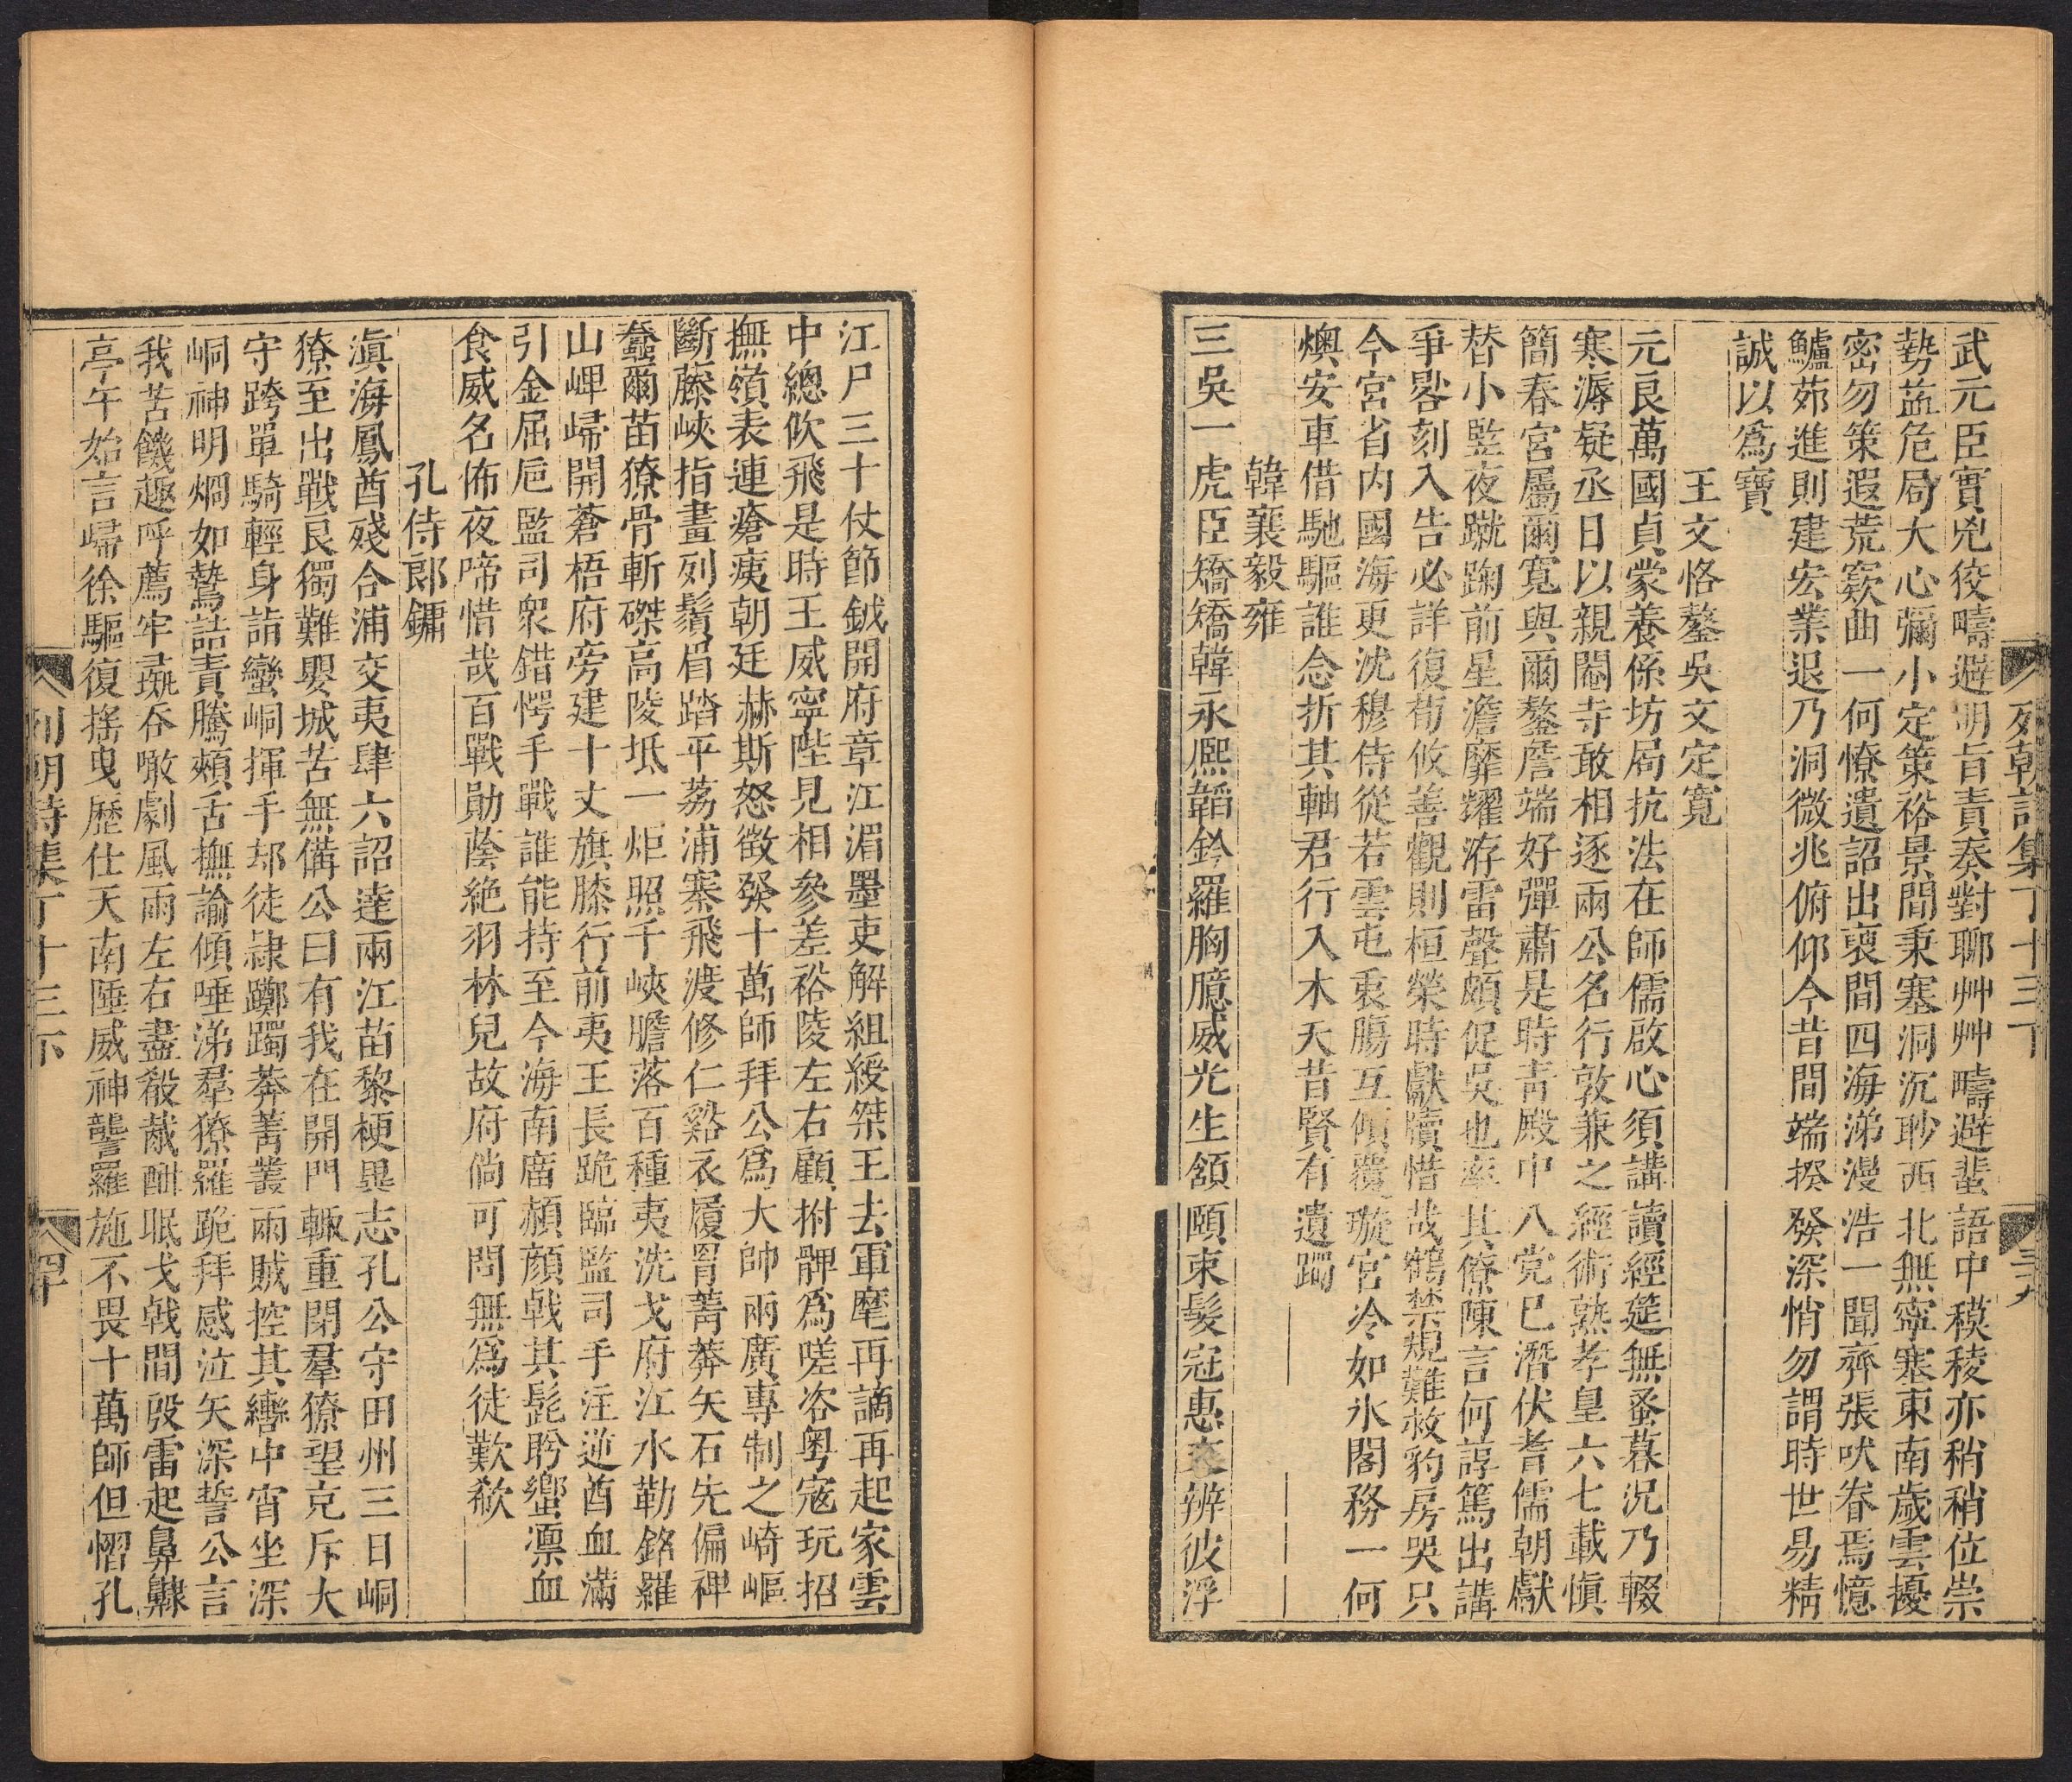 列朝詩集丁十三下 三九
武元臣實兇佼疇避明旨責奏對聊艸艸疇避蜚語中稷稜亦稍稍位崇
勢益危局大心彌小定策裕景間秉塞洞沉聆西北無寧塞東南歲雲擾
密勿策遐荒窾曲一何憭遺詔出裒間四海涕漫浩一聞齊張吠眷焉憶
鱸茆進則建宏業退乃洞微兆俯仰今昔間端揆發深悄勿謂時世易精
誠以爲寶
王文恪鏊吳文定寬
元良萬國貞蒙養係坊局抗法在師儒啟心須講讀經筵無蚤暮況乃輟
寒溽疑丞日以親閹寺敢相逐兩公名行敦兼之經術熟孝皇六七載愼
簡春宮屬爾寬與爾鏊詹端好彈肅是時靑殿中八党已潛伏耆儒朝獻
替小監夜蹴踘前星澹靡耀洊雷聲頗促吳也率其僚陳言何諄篤出講
爭晷刻入告必詳復苟攸善觀則桓榮時獻牘惜哉鶴禁規難救豹房哭只
今宮省内國海更沈穆侍從若雲屯衷膓互傾覆璇宮冷如氷閣務一何
燠安車借馳驅誰念折其軸君行入木天昔賢有遺躅
韓襄毅雍
三吳一虎臣矯矯韓永熈韜鈐羅胸臆威光生頷頤束髮冠惠文辨彼浮
江尸三十仗節鉞開府章江湄墨吏解組綬桀王去軍麾再謫再起家雲
中總佽飛是時王威寧陛見相參差裕陵左右顧拊髀爲嗟咨粵寇玩招
撫嶺表連瘡痍朝廷赫斯怒徵發十萬師拜公爲大帥兩廣專制之崎嶇
斷藤峽指畫列鬚眉踏平荔浦寨飛渡修仁谿衣履罥菁莽矢石先偏裨
蠢爾苗獠骨斬磔高陵坻一炬照千峽膽落百種夷洗戈府江水勒銘羅
山崥歸開蒼梧府旁建十丈旗膝行前夷王長跪臨監司手注逆酋血滿
引金屈卮監司衆錯愕手戰誰能持至今海南廇頳顏戟其髭肹蠁凛血
食威名佈夜啼惜哉百戰勛蔭絶羽林兒故府倘可問無爲徒歎欷
孔侍郎鏞
滇海鳳酋殘合浦交夷肆六詔達兩江苗黎梗異志孔公守田州三日峒
獠至出戰艮獨難嬰城苦無備公曰有我在開門輙重閉羣獠望克斥大
守跨單騎輕身詣蠻峒揮手却徒隷躑躅莽菁叢兩賊控其轡中宵坐深
峒神明烱如鷙詰責騰頰舌撫諭傾唾涕羣獠羅跪拜感泣矢深誓公言
我苦饑趣呼薦牢䟽吞噉劇風雨左右盡殽胾酣眠戈戟間殷雷起鼻齂
亭午始言歸徐驅復搖曳歷仕天南陲威神讋羅施不畏十萬師但慴孔
列朝詩集丁十三下 四十